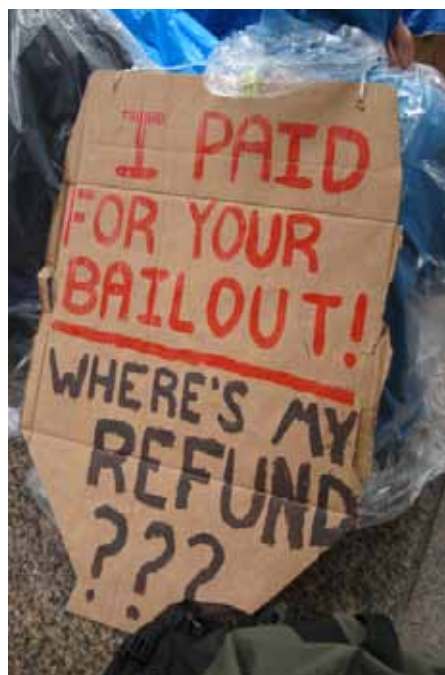 I PAID
FOR YOUR
BAILOUT!
WHERE'S MY
REFUND
???